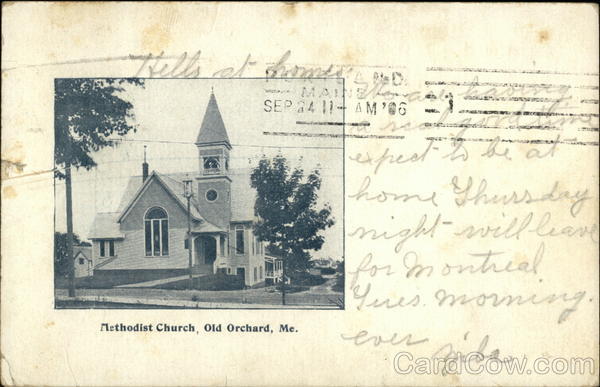 Hells at home
PORTLAND.
MAINE
SEP 24 11-AM '06
We are having
a real good time
expect to be at
home Thursday
night - will leave
for Montreal
Tues. morning.
ever
Methodist Church, Old Orchard, Me.
CardCow.com